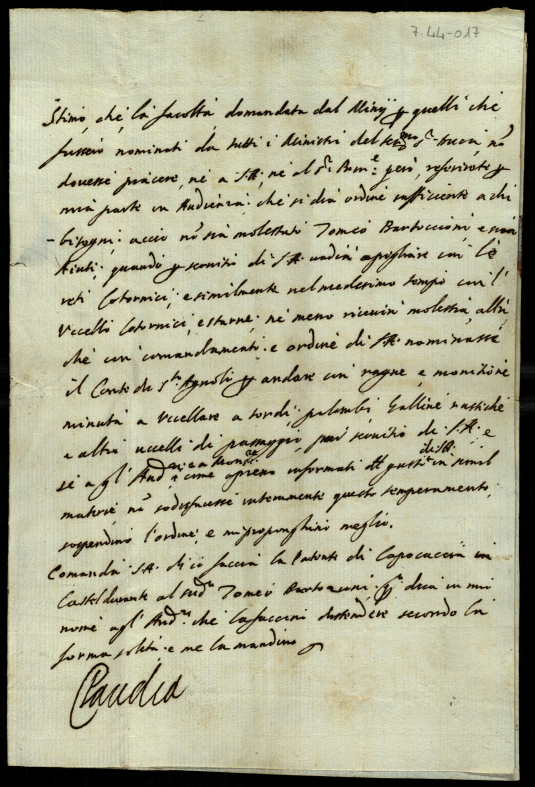 7.44-017
Stimo, che la facoltà domandata dal Miny p quelli che
fussero nominati da tutti i Ministri del
dovesse piacere, nè a S.A. nè al S.r però, referirete p
mia parte in Audienza, che si dia ordine sufficiente a chi
bisogni, acciò nõ sia molestato Tomeo Bartoccioni e suoi
Aiuti, quando p servitio di S.A. andrà a pigliare con le
reti Cotornici, e similmente nel medesimo tempo con l'
Uccello Cotornici, e starne, nè meno ricevin molestia, altri
che con comandamenti e ordine di S.A. nominasse
il Conte di S.to Agnoli p andare con ragne e monitione
minuta a Uccellare a tordi, palombi, Galline rustiche
e altri uccelli di passaggio, p servitio di S.A. e
se agl' Aud.ri come apieno informati gusti di S.A. in simil
materie nõ sodisfacesse interamente questo temperamento,
sospendino l'ordine, e mi proponghino meglio.
Comanda S.A. di ciò faccia la Patente di Capocaccia in
Casteldurante al sud.o Tomeo Bartoccioni dica in mio
nome agl' Aud.ri che la faccino distendere secondo la
forma solita e me la mandino
Claudia